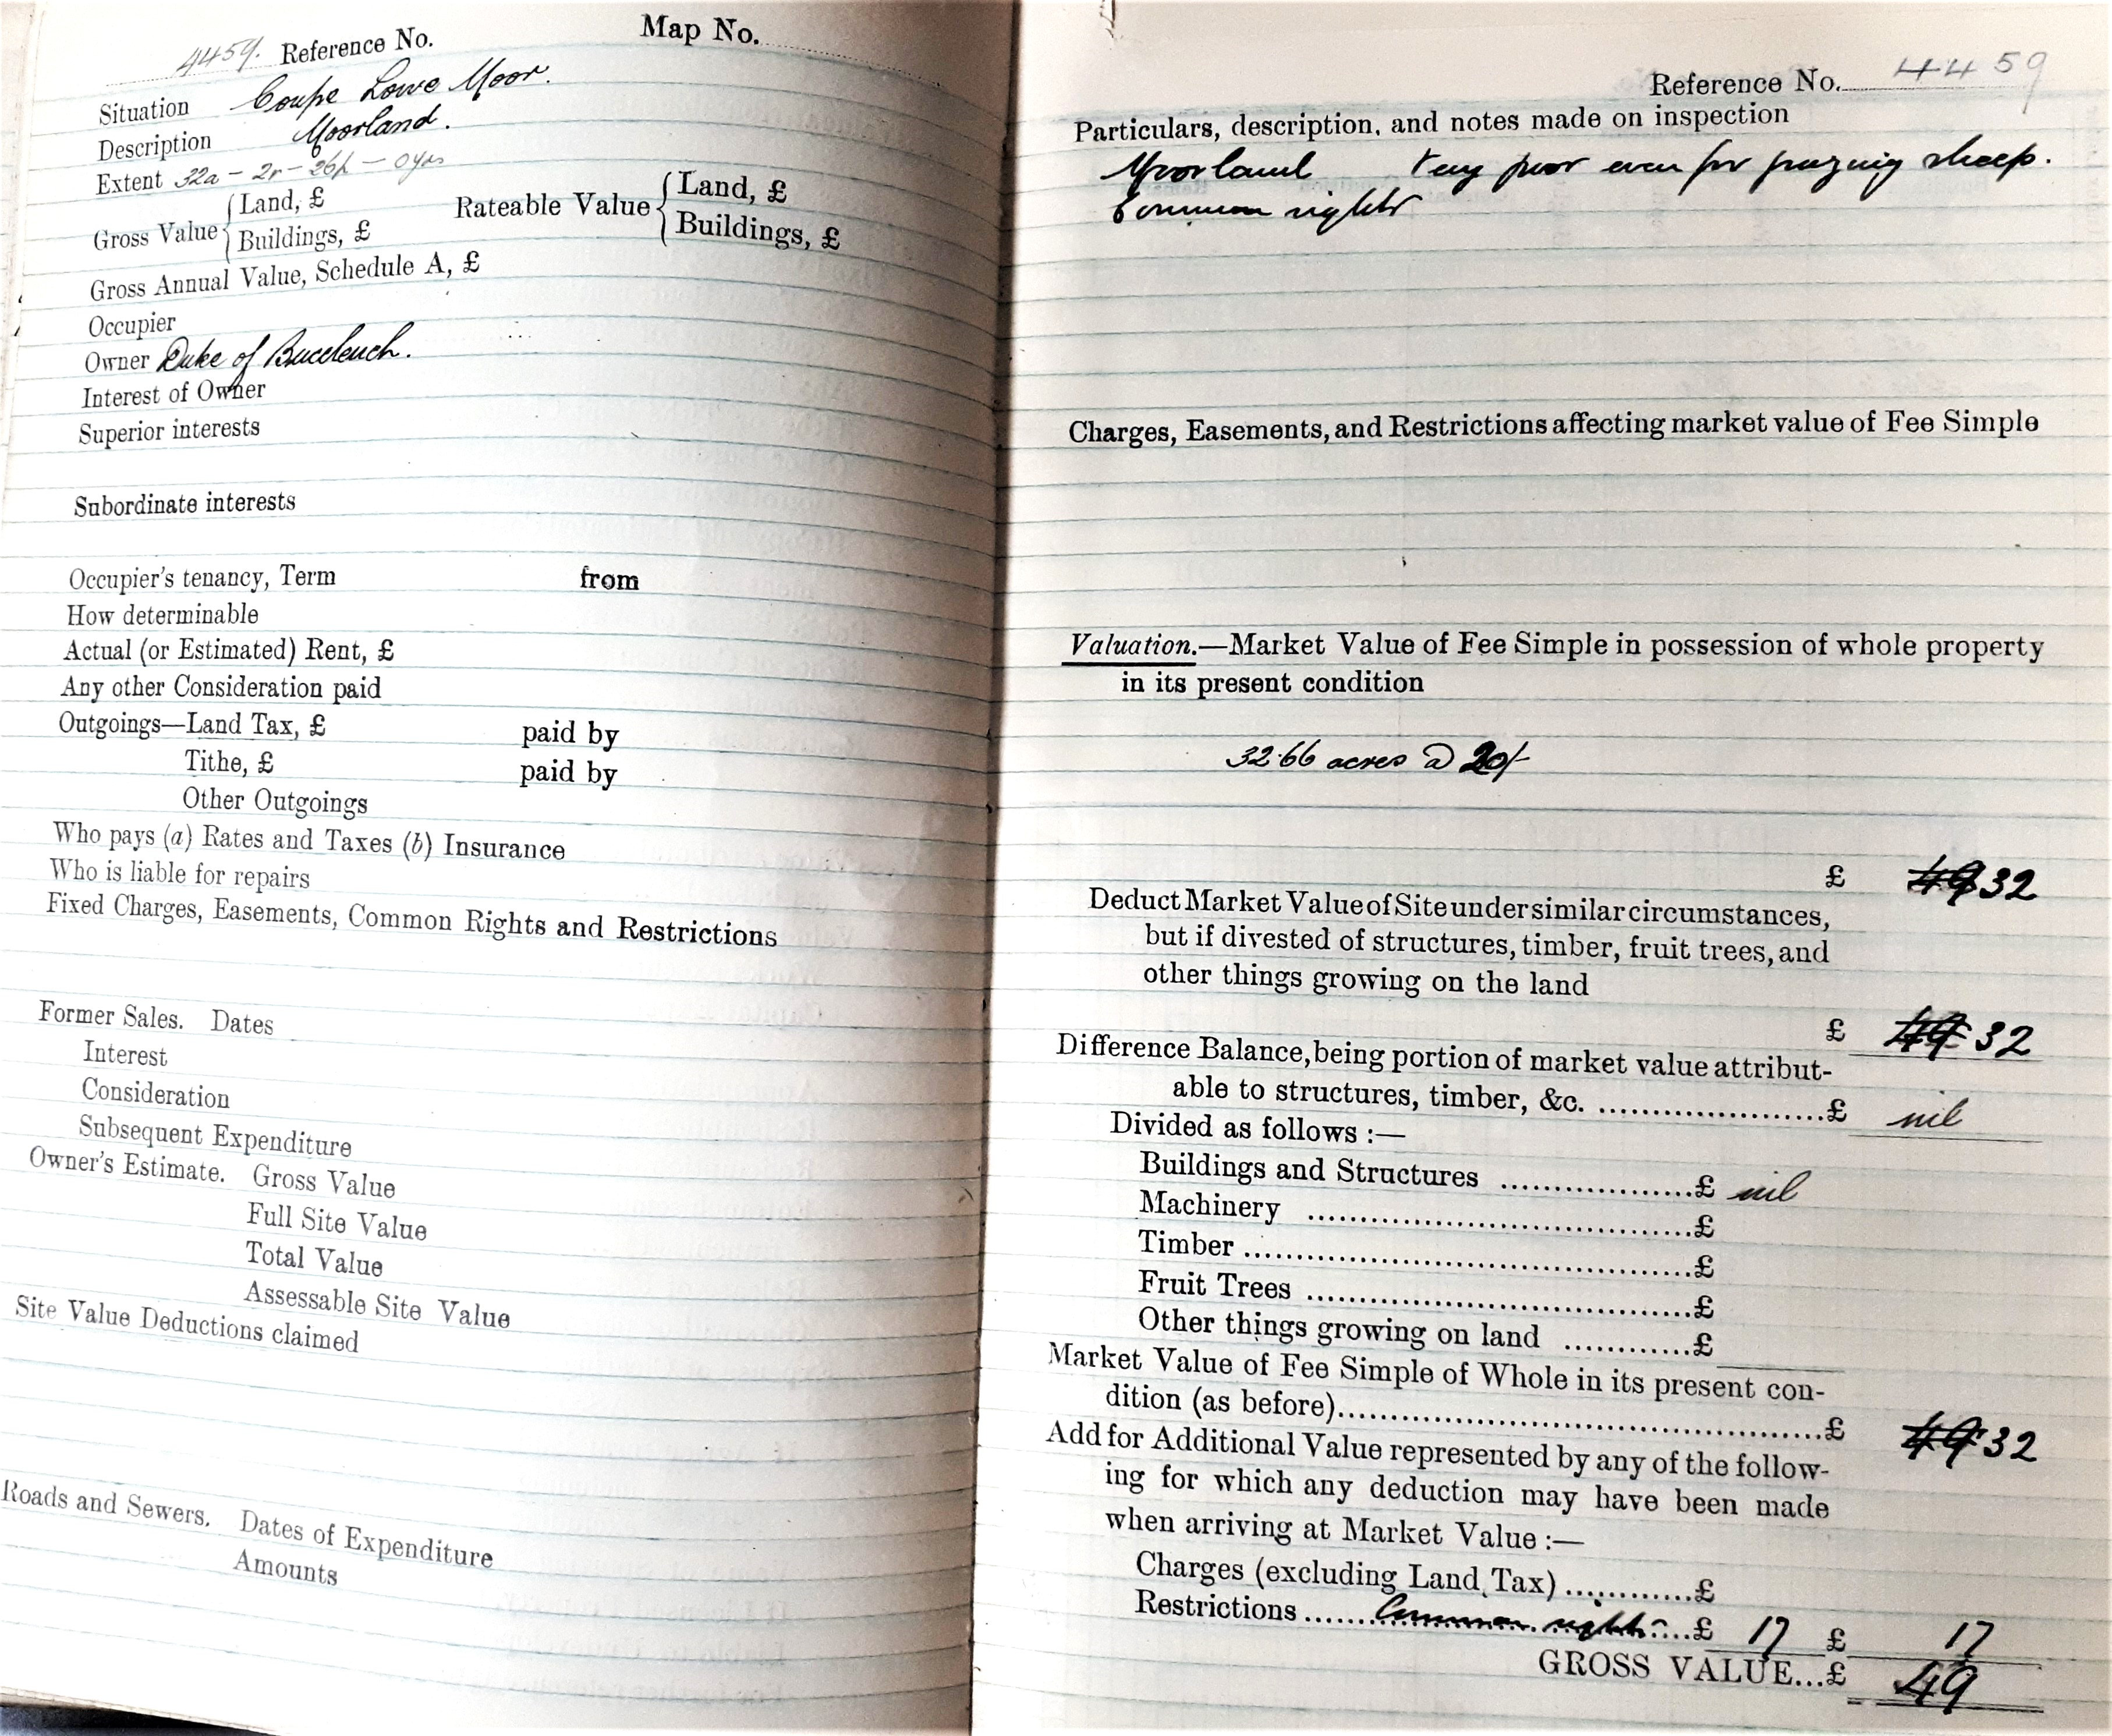 4459. Reference No. Map No.
Situation Coupe Lowe Moor.
Description Moorland.
Extent 32a - 2r - 26p - 0yds
Gross Value { Land, £ Rateable Value { Land, £
Buildings, £ Buildings, £
Gross Annual Value, Schedule A, £
Occupier
Owner Duke of Buccleuch.
Interest of Owner
Superior interests
Subordinate interests
Occupier's tenancy, Term from
How determinable
Actual (or Estimated) Rent, £
Any other Consideration paid
Outgoings—Land Tax, £ paid by
Tithe, £ paid by
Other Outgoings
Who pays (a) Rates and Taxes (b) Insurance
Who is liable for repairs
Fixed Charges, Easements, Common Rights and Restrictions
Former Sales. Dates
Interest
Consideration
Subsequent Expenditure
Owner's Estimate. Gross Value
Full Site Value
Total Value
Assessable Site Value
Site Value Deductions claimed
Roads and Sewers. Dates of Expenditure
Amounts
Reference No. 4459
Particulars, description, and notes made on inspection
Moorland Very poor even for grazing sheep.
Common rights
Charges, Easements, and Restrictions affecting market value of Fee Simple
Valuation.—Market Value of Fee Simple in possession of whole property
in its present condition
32.66 acres @ 20/-
£ 49 32
Deduct Market Value of Site under similar circumstances,
but if divested of structures, timber, fruit trees, and
other things growing on the land
£ 49 32
Difference Balance, being portion of market value attribut-
able to structures, timber, &c. ....................£ nil
Divided as follows :—
Buildings and Structures .................£ nil
Machinery ..................................£
Timber .......................................£
Fruit Trees ..................................£
Other things growing on land ............£
Market Value of Fee Simple of Whole in its present con-
dition (as before)...........................................£ 49 32
Add for Additional Value represented by any of the follow-
ing for which any deduction may have been made
when arriving at Market Value :—
Charges (excluding Land Tax) ............£
Restrictions ......Common rights....£ 17 £ 17
GROSS VALUE...£ 49